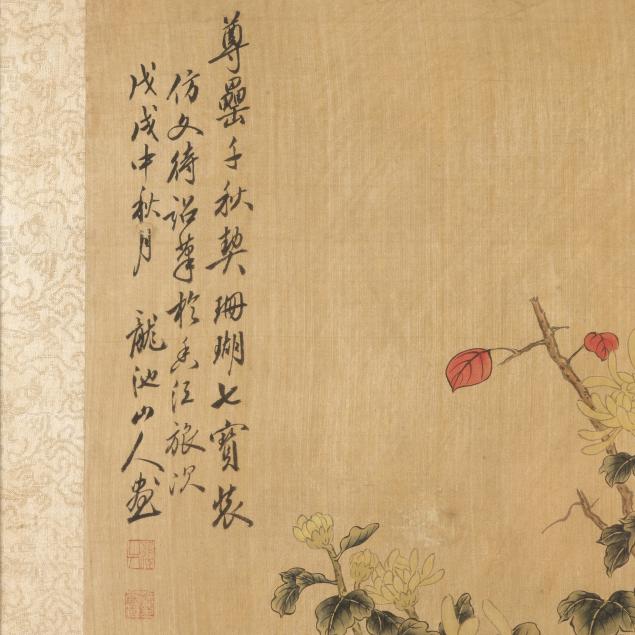 尊罍千秋契珊瑚七寳裝
仿文待詔筆於香江旅次
戊戌中秋月 龍池山人畫